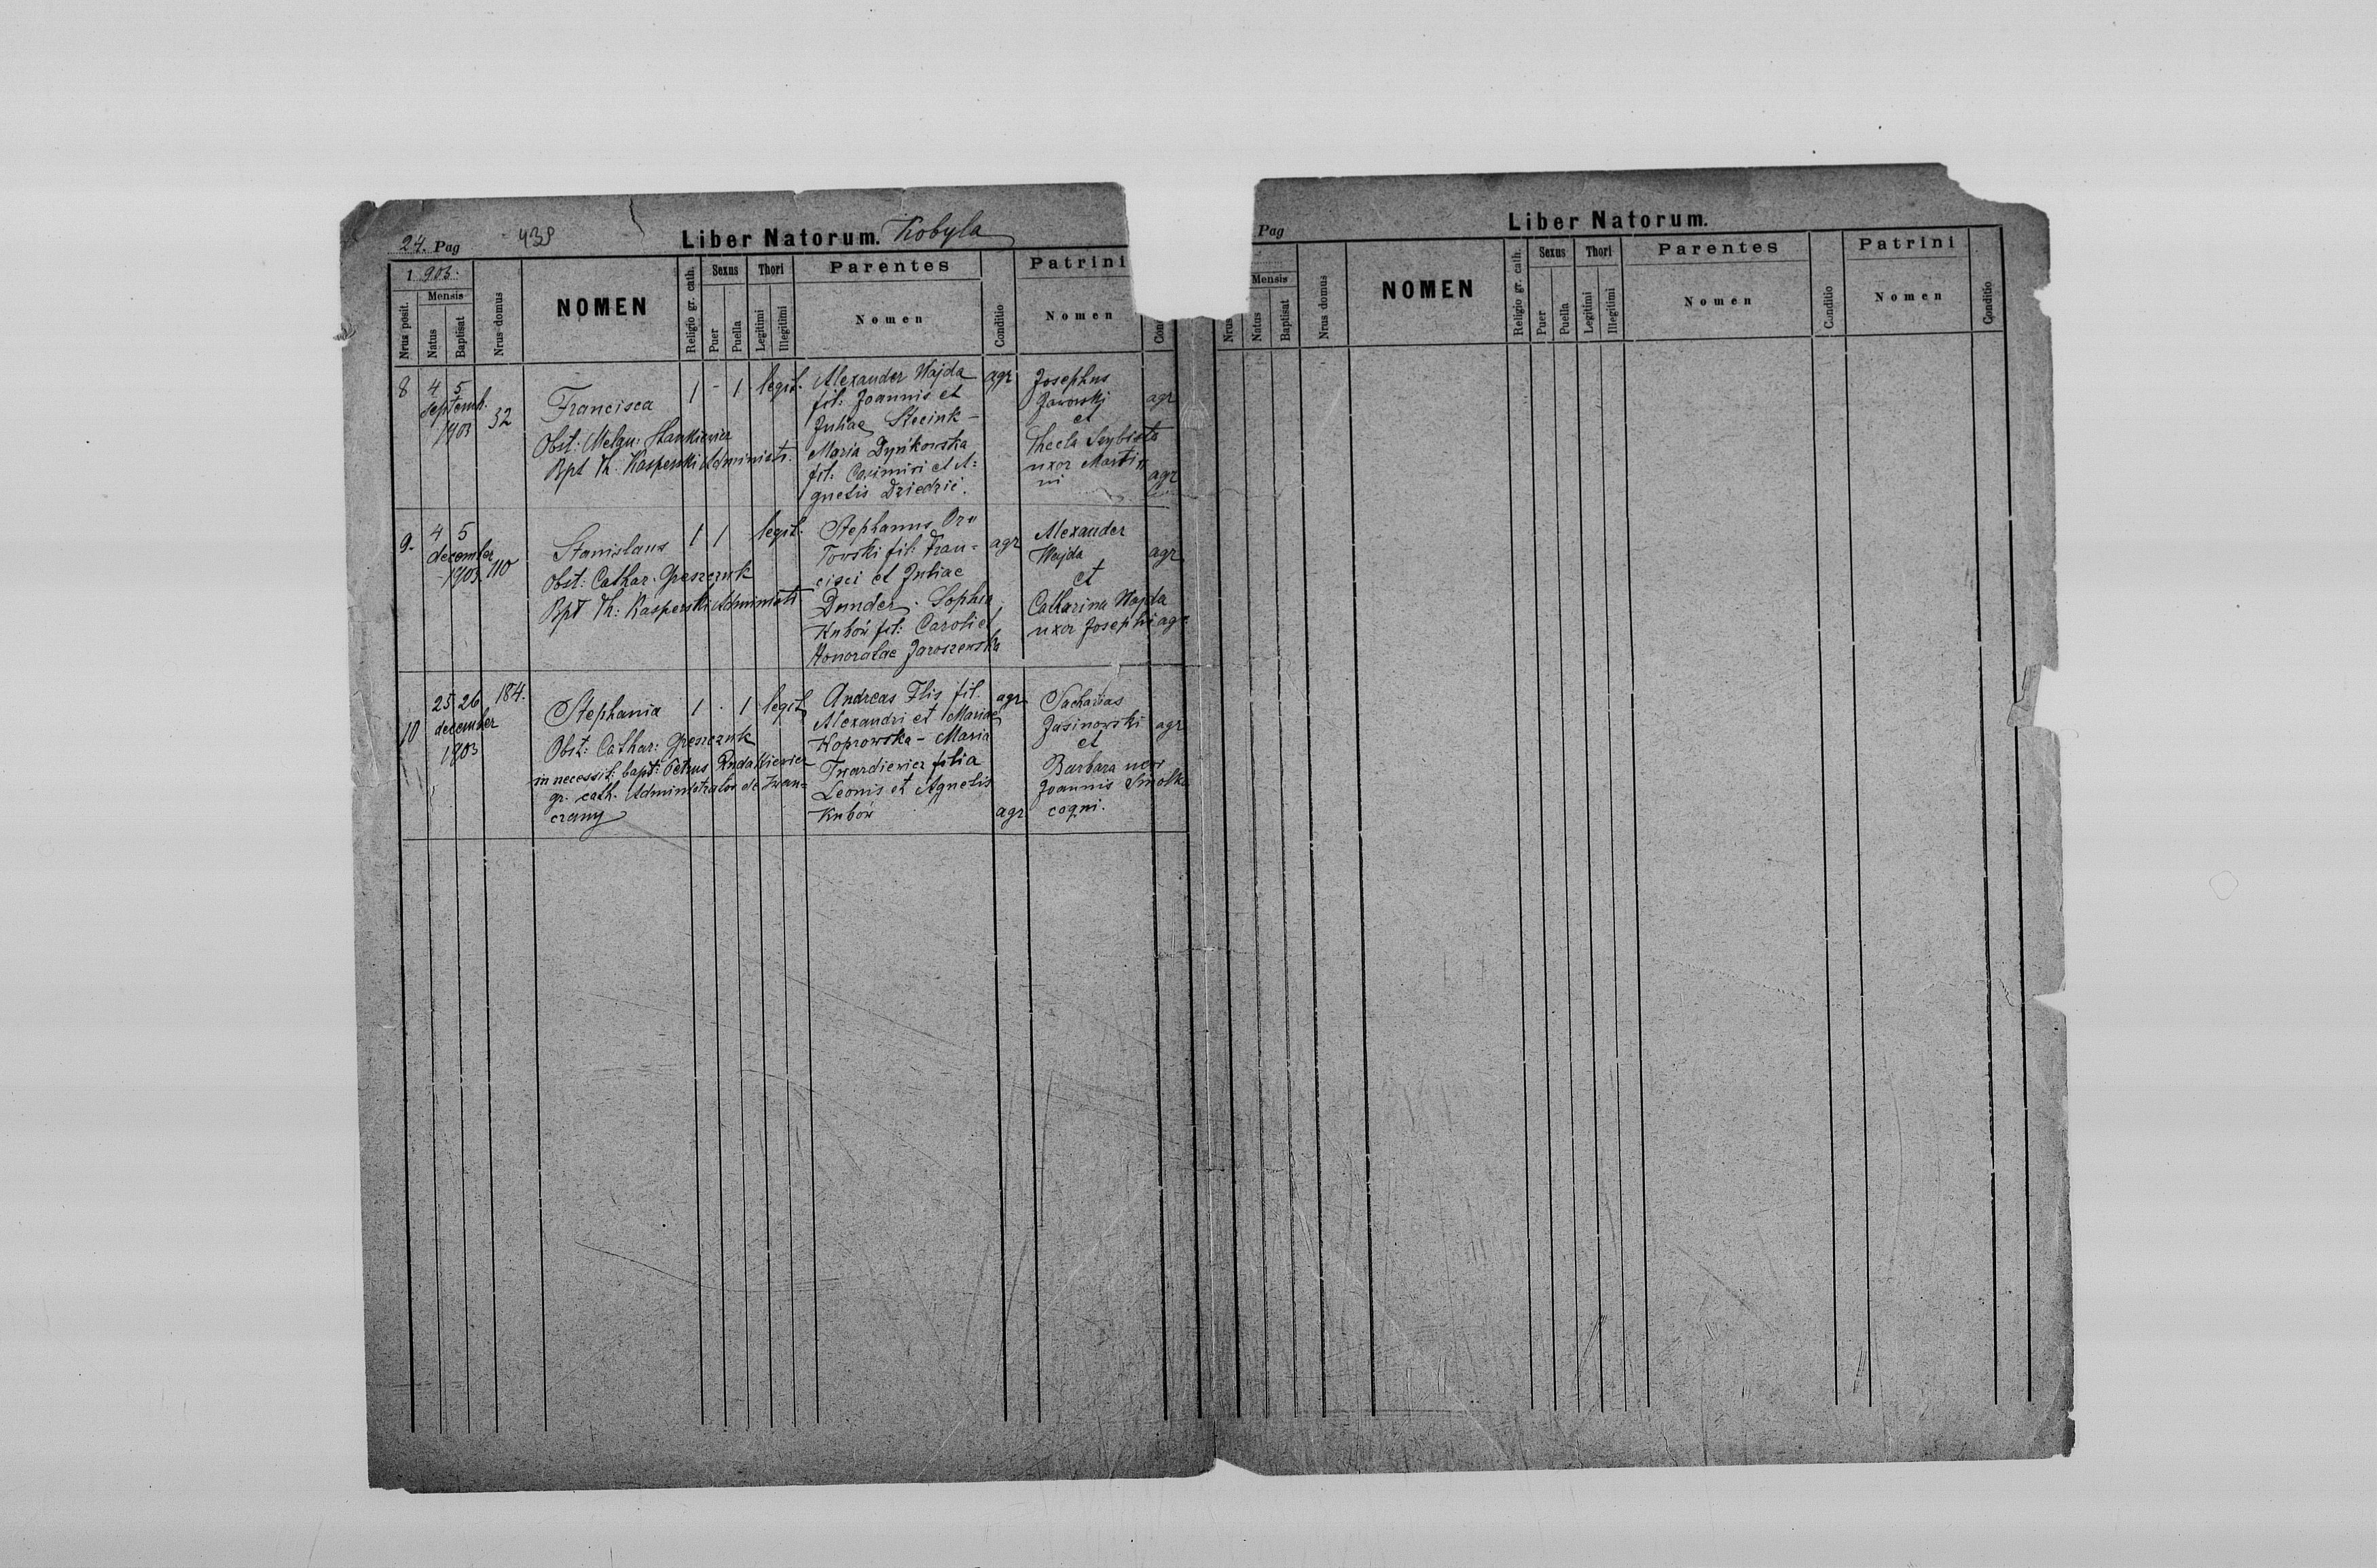 24. Pag 439 Liber Natorum. Kobyla
1 903.
Nrus posit.
Mensis
Natus
Baptisat
Nrus domus
NOMEN
Religio gr. cath.
Sexus
Puer
Puella
Thori
Legitimi
Illegitimi
Parentes
Nomen
Conditio
Patrini
Nomen
8 4 5 Septemb. 1903 32
Francisca 1 - 1 legit.
Obst: Melan: Stankiewicz
Bpt Th: Kasperski Administr.
Alexander Wajda agr
fil: Joannis et
Juliae Stecink -
Maria Dynkowska
fil: Casimiri et A=
gnetis Dziedzic.
Josephus
Jaworskj agr
et
Thecla
uxor Marti
ni agr
9. 4 5 december 1903 110
Stanislaus 1 1 legit.
Obst: Cathar. Greszczuk
Bpt Th: Kasperski Administr
Stephanus Or=
Towski fil: Fran= agr
cisci et Juliae
Dunder. Sophia
Kubów fil: Caroli et
Honoratae Jaroszewska
Alexander
Wajda agr
et
Catharina Wajda
uxor Josephi agr
10 25 26 december 1903 184.
Stephania 1 . 1 legit
Obst: Cathar: Greszczuk
in necessit: bapt: Petrus Rudakiewicz
gr. cath. Administrator de Iwan=
czany
Andreas Flis fil. agr
Alexandri et Mariae
Koprowska - Maria
Twardiewicz filia
Leonis et Agnetis
Kubów agr
Sacharias
Jasinowski agr
et
Barbara uxor
Joannis Smolka
coqni.
Pag Liber Natorum.
Nrus
Mensis
Natus
Baptisat
Nrus domus
NOMEN
Religio gr. cath.
Sexus
Puer
Puella
Thori
Legitimi
Illegitimi
Parentes
Nomen
Conditio
Patrini
Nomen
Conditio